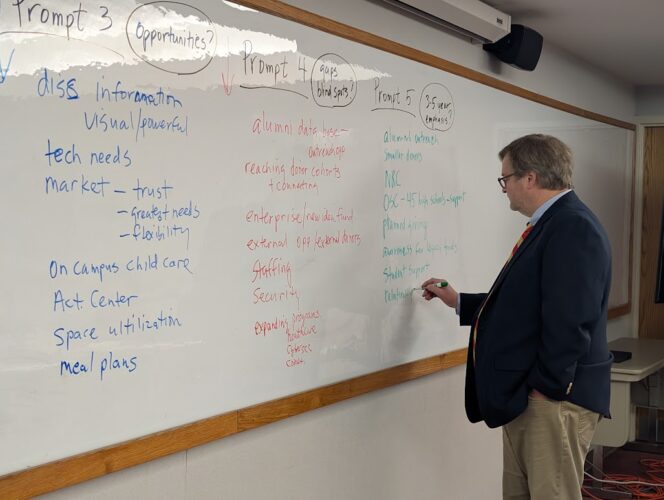 Prompt 3
Opportunities?
diss information
visual/powerful
tech needs
market – trust
– greatest needs
– flexibility
On campus child care
Act. Center
Space ultilization
meal plans
Prompt 4
gaps
blind spots?
alumni data base –
outreach opp
reaching donor cohorts
+ connecting
enterprise/new iden fund
external opp/external donors
Staffing
Security
expanding programs
healthcare
Cybersec
Const.
Prompt 5
3-5 year
emphasis?
alumni outreach
smaller donors
NRC
OSC – 45 high schools – support
planned giving
awareness for legacy funds
Student support